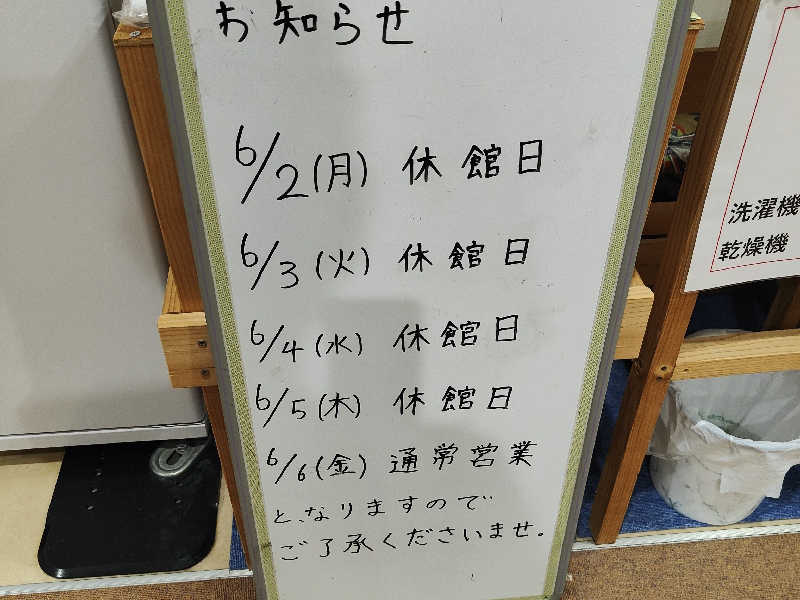 お知らせ
6/2(月) 休館日
6/3(火) 休館日
6/4(水) 休館日
6/5(木) 休館日
6/6(金) 通常営業
と、なりますので
ご了承くださいませ。
洗濯機
乾燥機